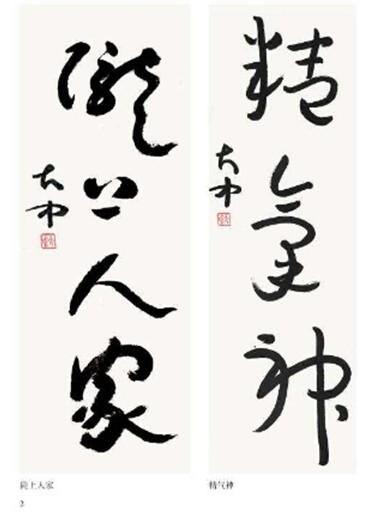 隴上人家
大中
精氣神
大中
陇上人家
精气神
2